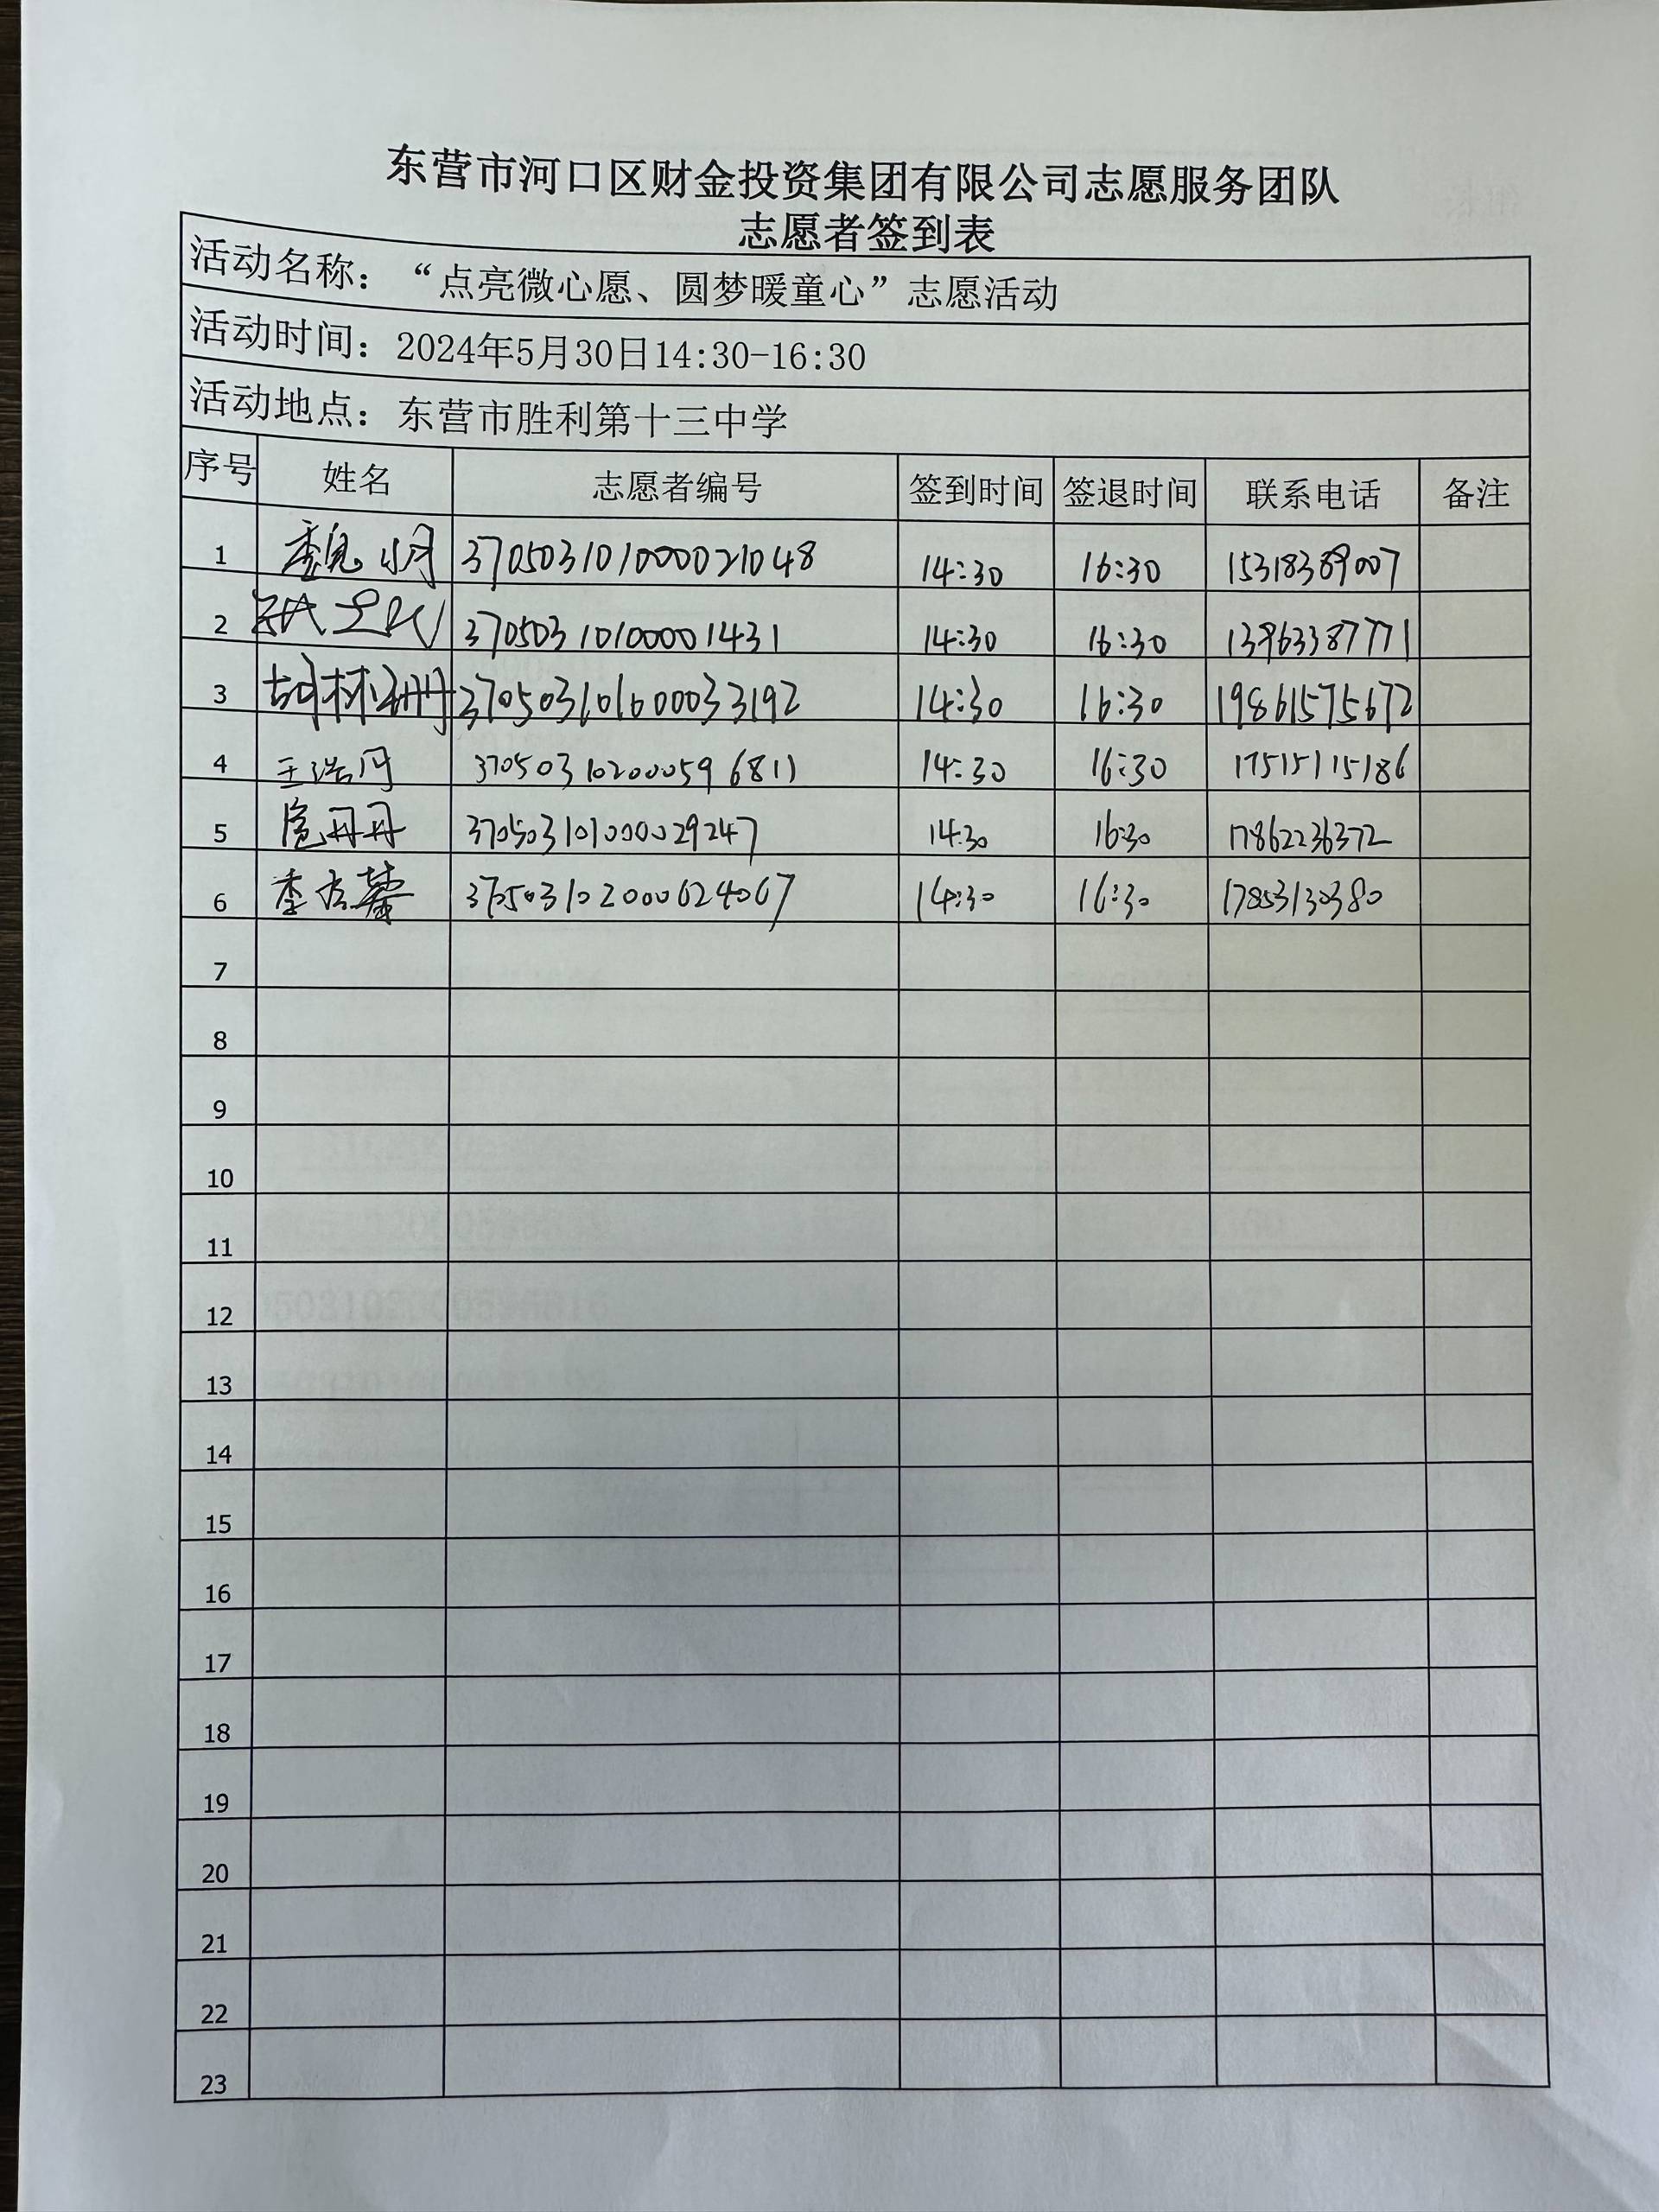 东营市河口区财金投资集团有限公司志愿服务团队
志愿者签到表
活动名称：“点亮微心愿、圆梦暖童心”志愿活动
活动时间：2024年5月30日14:30-16:30
活动地点：东营市胜利第十三中学
序号 姓名 志愿者编号 签到时间 签退时间 联系电话 备注
1 魏小月 3705031010000021048 14:30 16:30 15318389007
2 37050310100001431 14:30 16:30 13963387771
3 胡林珊 370503101000033192 14:30 16:30 19861575672
4 王浩丹 370503102000596811 14:30 16:30 17515115186
5 扈丹丹 3705031010000029247 14:30 16:30 17862236372
6 李 3705031020000624067 14:30 16:30 17853130380
7
8
9
10
11
12
13
14
15
16
17
18
19
20
21
22
23